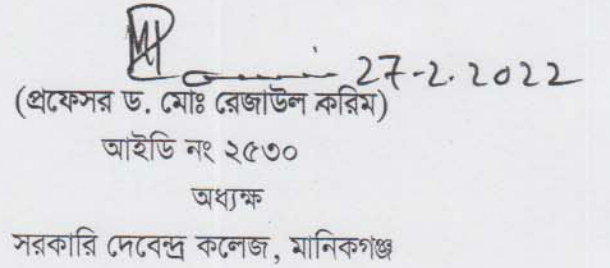 27-2.2022
(প্রফেসর ড. মোঃ রেজাউল করিম)
আইডি নং ২৫৩০
অধ্যক্ষ
সরকারি দেবেন্দ্র কলেজ, মানিকগঞ্জ